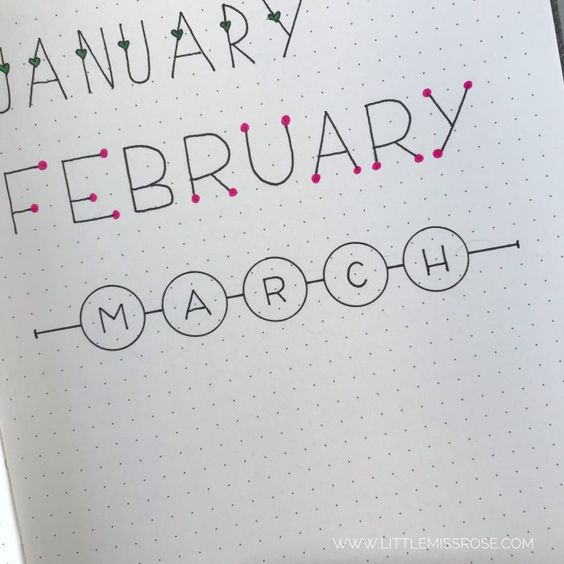 JANUARY
FEBRUARY
MARCH
WWW.LITTLEMISSROSE.COM